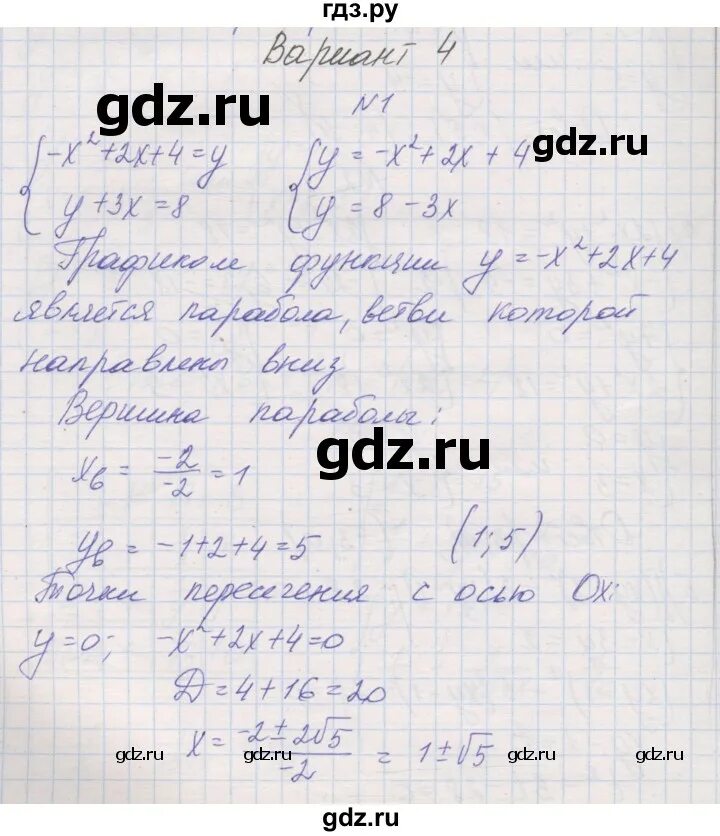 гдз.ру
Вариант 4
gdz.ru
N1
{-x²+2x+4=y {y=-x²+2x+4
gdz.ru
y+3x=8 y=8-3x
Графиком функции y=-x²+2x+4
является парабола, ветви которой
направлены вниз
Вершина параболы:
gdz.ru
xв = -2/-2 = 1
yв = -1+2+4=5 (1;5)
Точки пересечения с осью Ox:
y=0; -x²+2x+4=0
D=4+16=20
x = -2±2√5/-2 = 1±√5
gdz.ru gdz.ru gdz.ru gdz.ru
gdz.ru